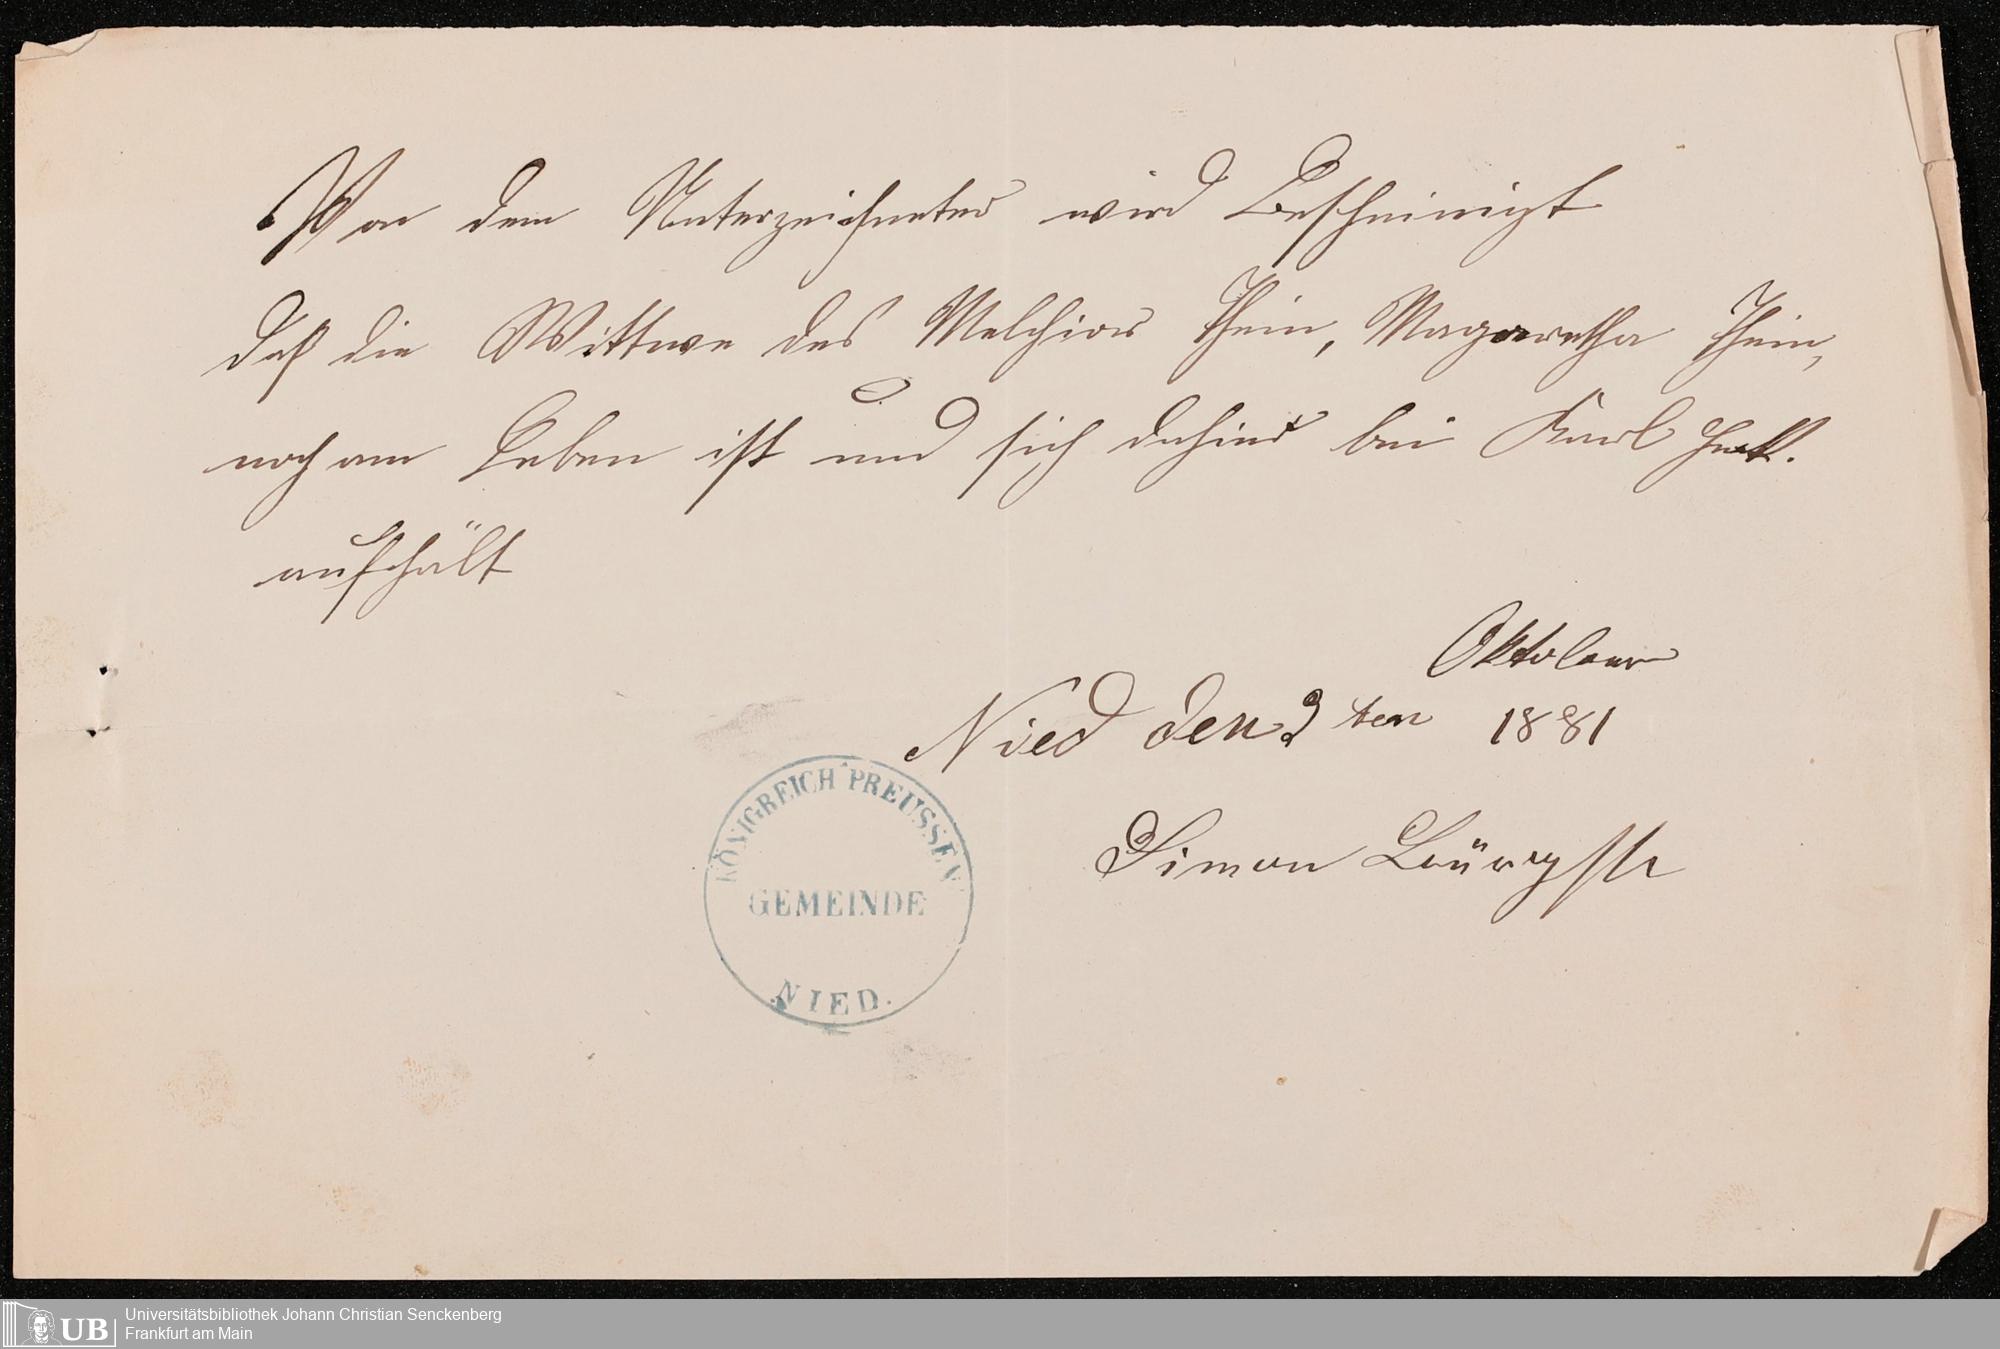 Von dem Unterzeichneter wird Bescheinigt
daß die Wittwe des Melchior Thein, Magaretha Thein,
noch am Leben ist und sich dahier bei Karl
aufhält
Oktober
Nied den 3 ten 1881
Simon
KÖNIGREICH PREUSSEN
GEMEINDE
NIED.
UB
Universitätsbibliothek Johann Christian Senckenberg
Frankfurt am Main